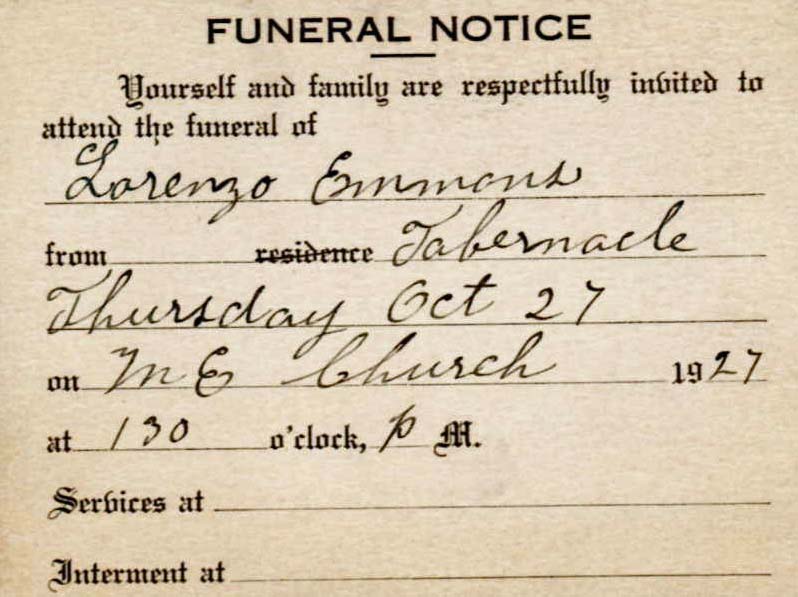 FUNERAL NOTICE
Yourself and family are respectfully invited to
attend the funeral of
Lorenzo Emmons
from residence Tabernacle
Thursday Oct 27
on M E Church 1927
at 130 o'clock, P M.
Services at
Interment at